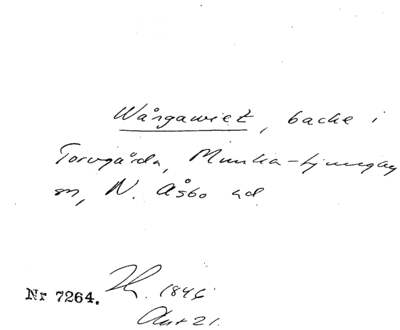 Wårgawiet, backe i
Torvgårda, Munka-Ljungby
sn, N. Åsbo hd.
Nr 7264. 1846